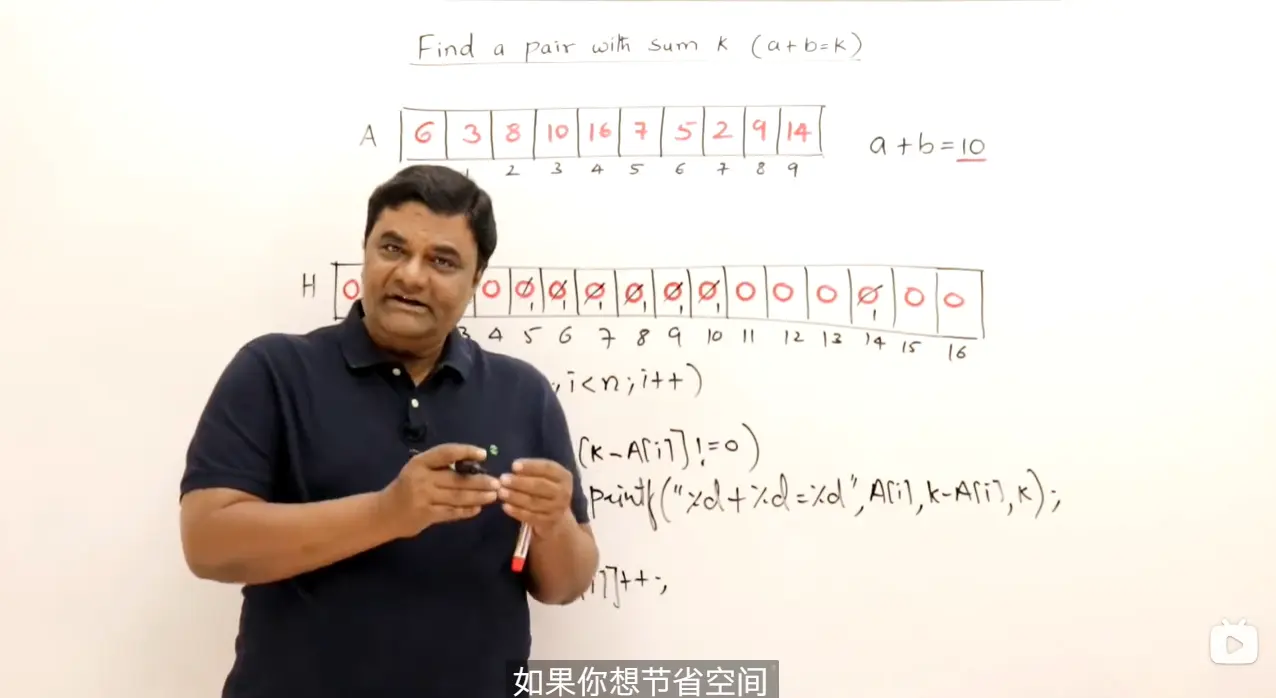 Find a pair with sum K (a+b=k)
A 6 3 8 10 16 7 5 2 9 14
a+b=10
1 2 3 4 5 6 7 8 9
H 0 0 0 0 0 0 0 0 0 0 0 0 0 0 0
1 1 1 1 1 1 1
3 4 5 6 7 8 9 10 11 12 13 14 15 16
;i<n;i++)
(K-A[i]]!=0)
printf("%d+%d=%d",A[i],K-A[i],K);
i]]++;
如果你想节省空间